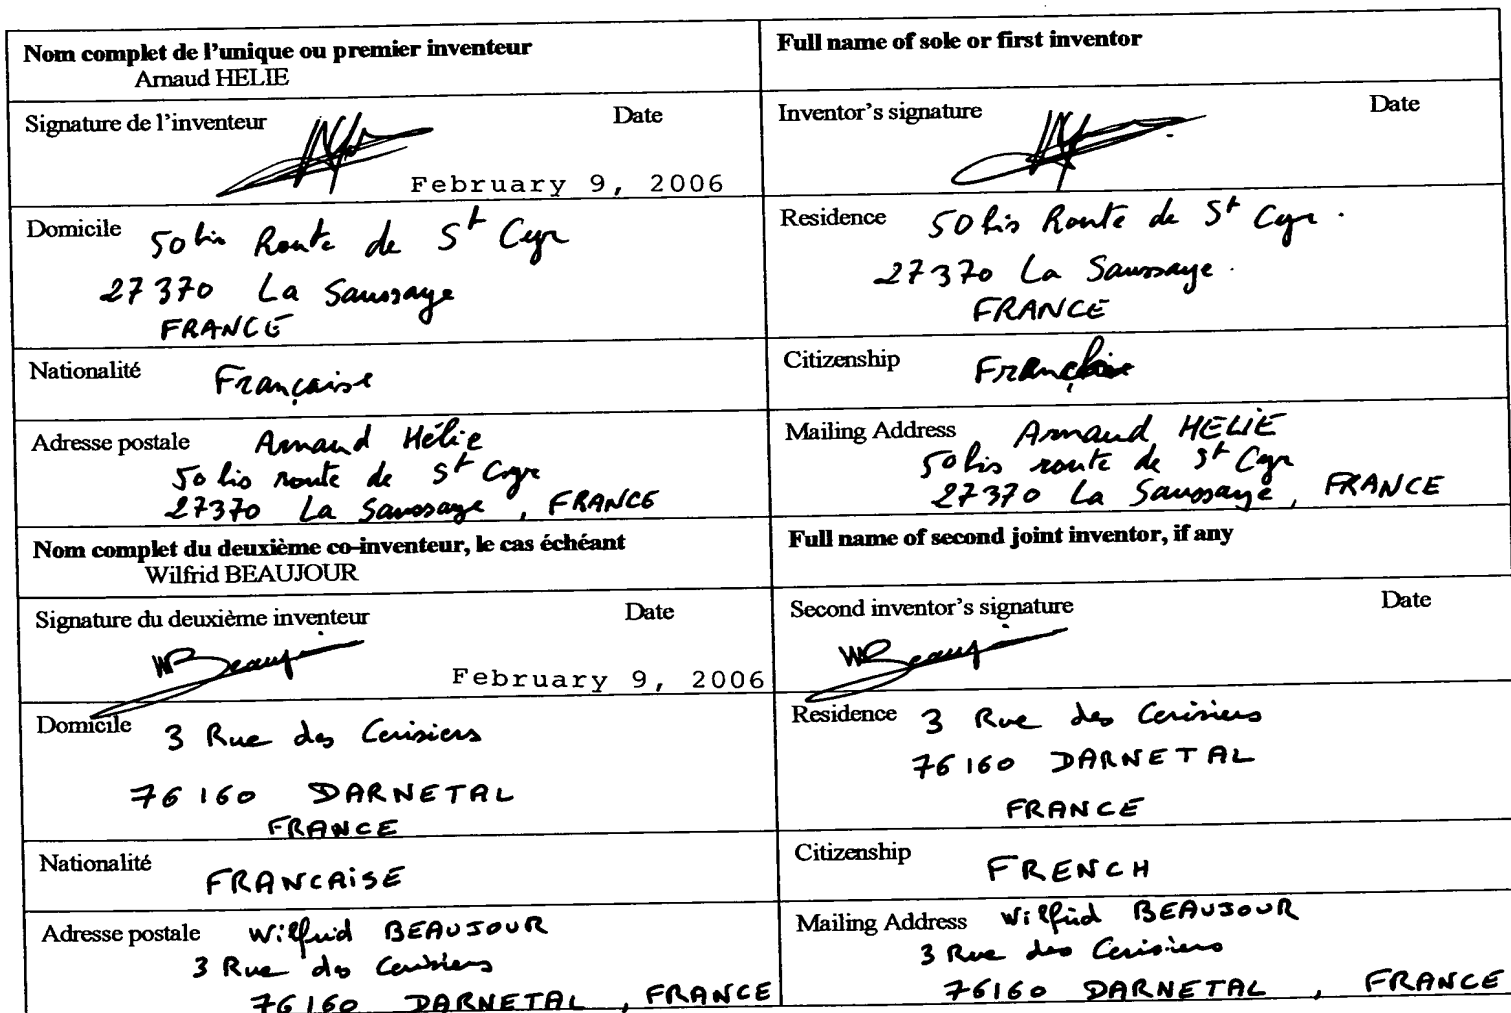 Nom complet de l'unique ou premier inventeur
Arnaud HELIE
Full name of sole or first inventor
Signature de l'inventeur Date
February 9, 2006
Inventor's signature Date
Domicile 50 bis Route de St Cyr
27370 La Saussaye
FRANCE
Residence 50 bis Route de St Cyr.
27370 La Saussaye.
FRANCE
Nationalité Française
Citizenship
Adresse postale Arnaud Hélie
50 bis route de St Cyr
27370 La Saussaye, FRANCE
Mailing Address Arnaud HELIE
50 bis route de St Cyr
27370 La Saussaye, FRANCE
Nom complet du deuxième co-inventeur, le cas échéant
Wilfrid BEAUJOUR
Full name of second joint inventor, if any
Signature du deuxième inventeur Date
WBeaujour
February 9, 2006
Second inventor's signature Date
WBeaujour
Domicile 3 Rue des Cerisiers
76160 DARNETAL
FRANCE
Residence 3 Rue des Cerisiers
76160 DARNETAL
FRANCE
Nationalité FRANCAISE
Citizenship FRENCH
Adresse postale Wilfrid BEAUJOUR
3 Rue des Cerisiers
76160 DARNETAL, FRANCE
Mailing Address Wilfrid BEAUJOUR
3 Rue des Cerisiers
76160 DARNETAL, FRANCE